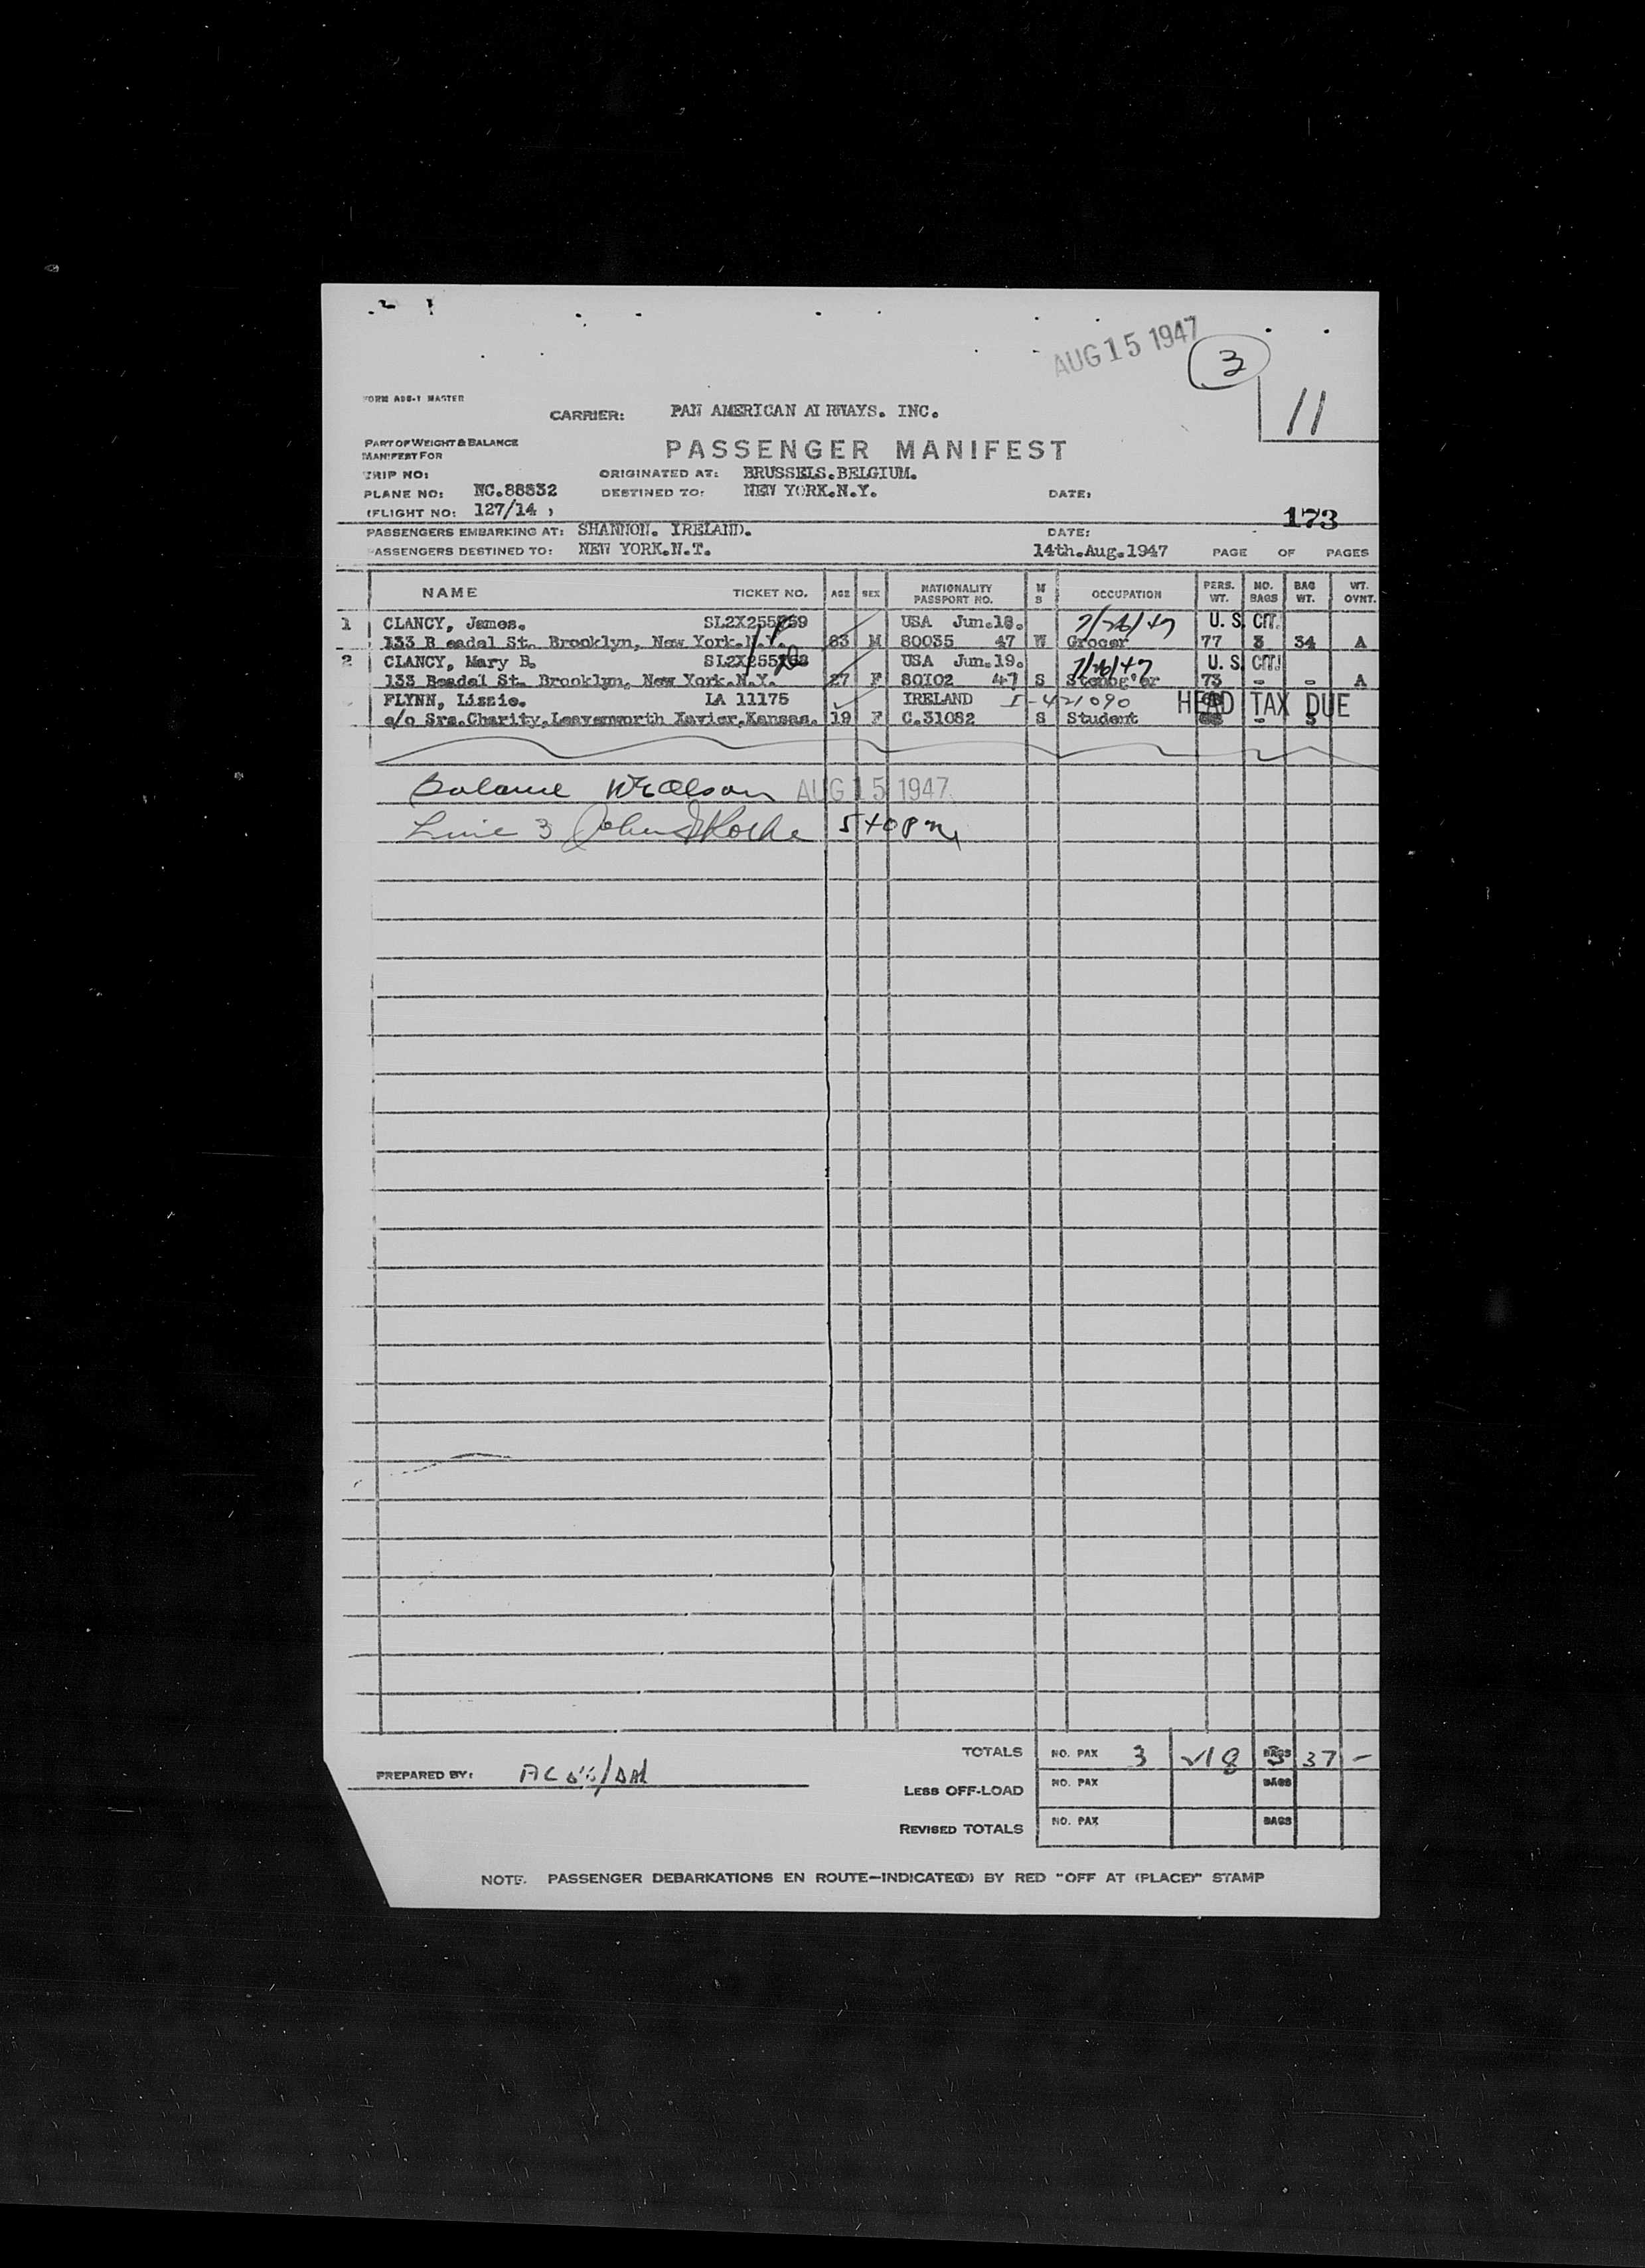 AUG 15 1947
3
11
FORM ADB-1 MASTER
CARRIER: PAN AMERICAN AI RWAYS. INC.
PART OF WEIGHT & BALANCE
MANIFEST FOR
PASSENGER MANIFEST
TRIP NO: ORIGINATED AT: BRUSSELS.BELGIUM.
PLANE NO: NC.88832 DESTINED TO: NEW YORK.N.Y. DATE:
(FLIGHT NO: 127/14 )
173
PASSENGERS EMBARKING AT: SHANNON. IRELAND. DATE:
PASSENGERS DESTINED TO: NEW YORK.N.T. 14th.Aug.1947 PAGE OF PAGES
NAME TICKET NO. AGE SEX NATIONALITY PASSPORT NO. M S OCCUPATION PERS. WT. NO. BAGS BAG WT. WT. OVNT.
1 CLANCY, James. USA Jun.18. 7/26/47 U. S. CIT.
133 B eadel St. Brooklyn, New York.N.Y. 63 M 80035 47 W Grocer 77 3 34 A
2 CLANCY, Mary B. USA Jun.19. 7/26/47 U. S. CIT.
133 Beadel St. Brooklyn, New York.N.Y. 27 F 80102 47 S Stenog'er 73 - - A
FLYNN, Lizzie. LA 11175 IRELAND I-421090 HEAD TAX DUE
c/o Srs.Charity,Leavenworth Xavier,Kansas. 19 F C.31082 S Student - 3
Balance AUG 15 1947
Line 3 540 PM
TOTALS NO. PAX 3 218 BAGS 3 37 -
PREPARED BY:
LESS OFF-LOAD NO. PAX BAGS
REVISED TOTALS NO. PAX BAGS
NOTE. PASSENGER DEBARKATIONS EN ROUTE—INDICATE(D) BY RED "OFF AT (PLACE)" STAMP